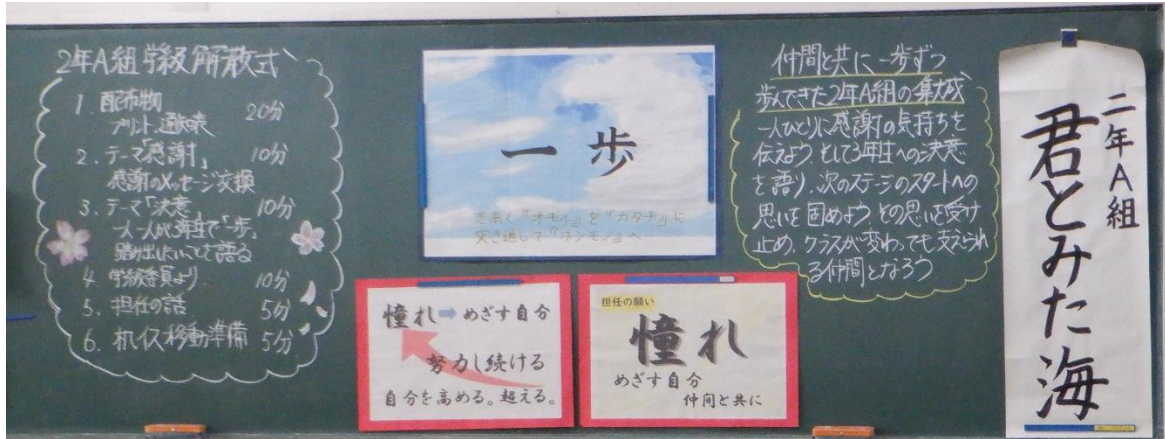 2年A組 学級解散式
1. 配布物 20分
プリント、通知表
2. テーマ「感謝」 10分
感謝のメッセージ交換
3. テーマ「決意」 10分
一人一人が3年生で「一歩」
踏み出したいことを語る
4. 学級委員より 10分
5. 担任の話 5分
6. 机イス移動準備 5分
一歩
憧れ➡めざす自分
努力し続ける
自分を高める。超える。
担任の願い
憧れ
めざす自分
仲間と共に
仲間と共に一歩ずつ
歩んできた2年A組の集大成
一人ひとりに感謝の気持ちを
伝えよう そして3年生への決意
を語り、次のステージのスタートへの
思いを固めよう その思いを受け
止め、クラスが変わっても支えられ
る仲間となろう
二年A組
君とみた海